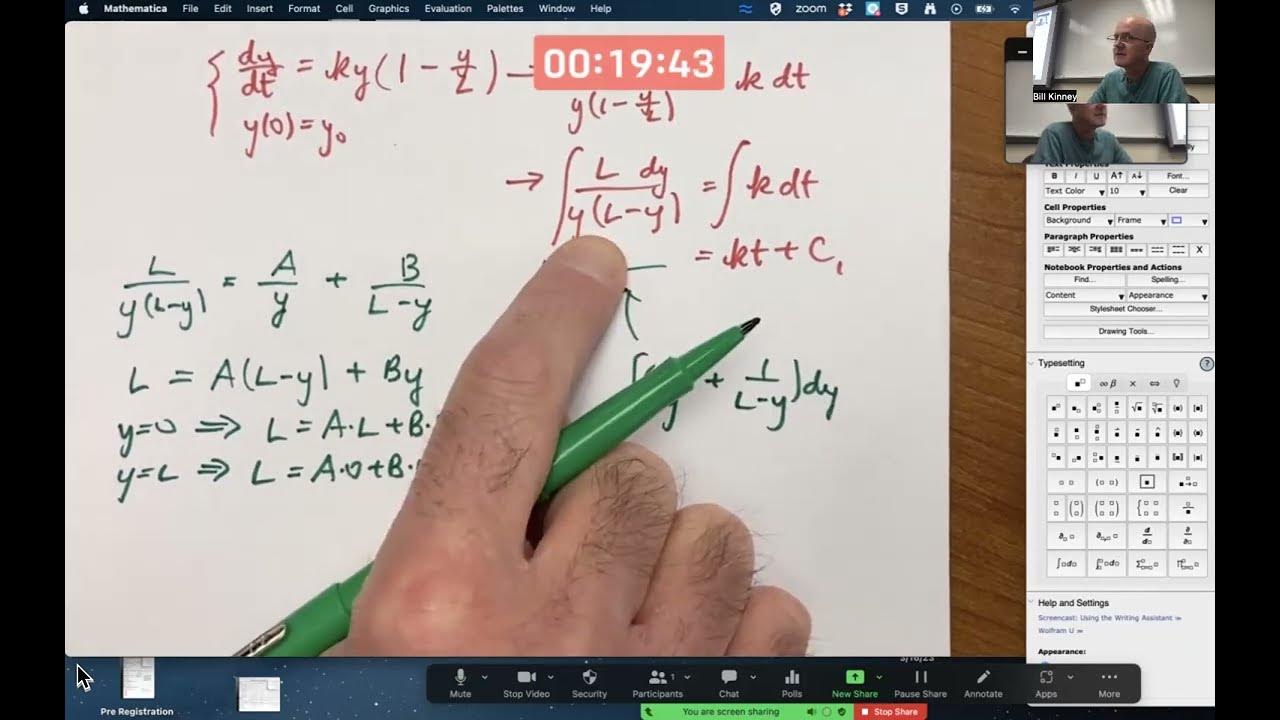 Mathematica File Edit Insert Format Cell Graphics Evaluation Palettes Window Help zoom
dy/dt = ky(1 - y/L) →
y(0) = y₀
00:19:43
y(1 - y/L)
k dt
→ ∫ L dy / y(L-y) = ∫ k dt
= kt + C₁
L / y(L-y) = A/y + B/(L-y)
L = A(L-y) + By
y=0 ⇒ L = A·L + B·
y=L ⇒ L = A·0 + B·
+ 1/(L-y)) dy
y
Bill Kinney
Text Properties
B I U A↑ A↓ Font...
Text Color 10 Clear
Cell Properties
Background Frame
Paragraph Properties
X
Notebook Properties and Actions
Find... Spelling...
Content Appearance
Stylesheet Chooser...
Drawing Tools...
Typesetting ?
Help and Settings
Screencast: Using the Writing Assistant »
Wolfram U »
Appearance:
3/16/23
Mute Stop Video Security Participants 1 Chat Polls New Share Pause Share Annotate Apps More
Pre Registration
You are screen sharing Stop Share